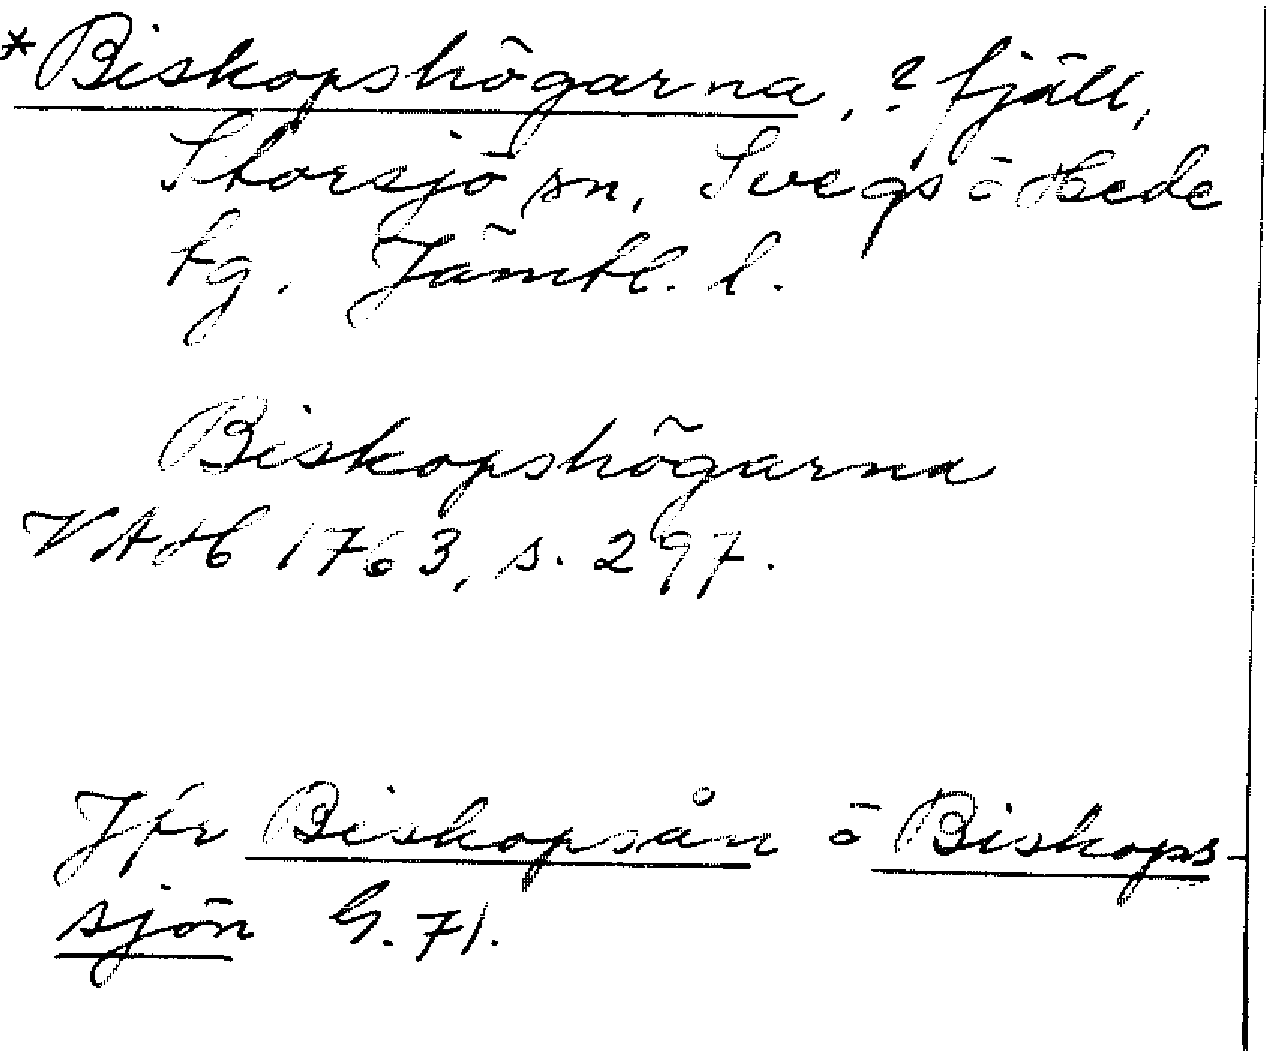 *Biskopshögarna, ? fjäll,
Storsjö sn, Svegs o Hede
tg. Jämtl. l.
Biskopshögarna
VAH 1763, s. 297.
Jfr Biskopsån o Biskops-
sjön G. 71.